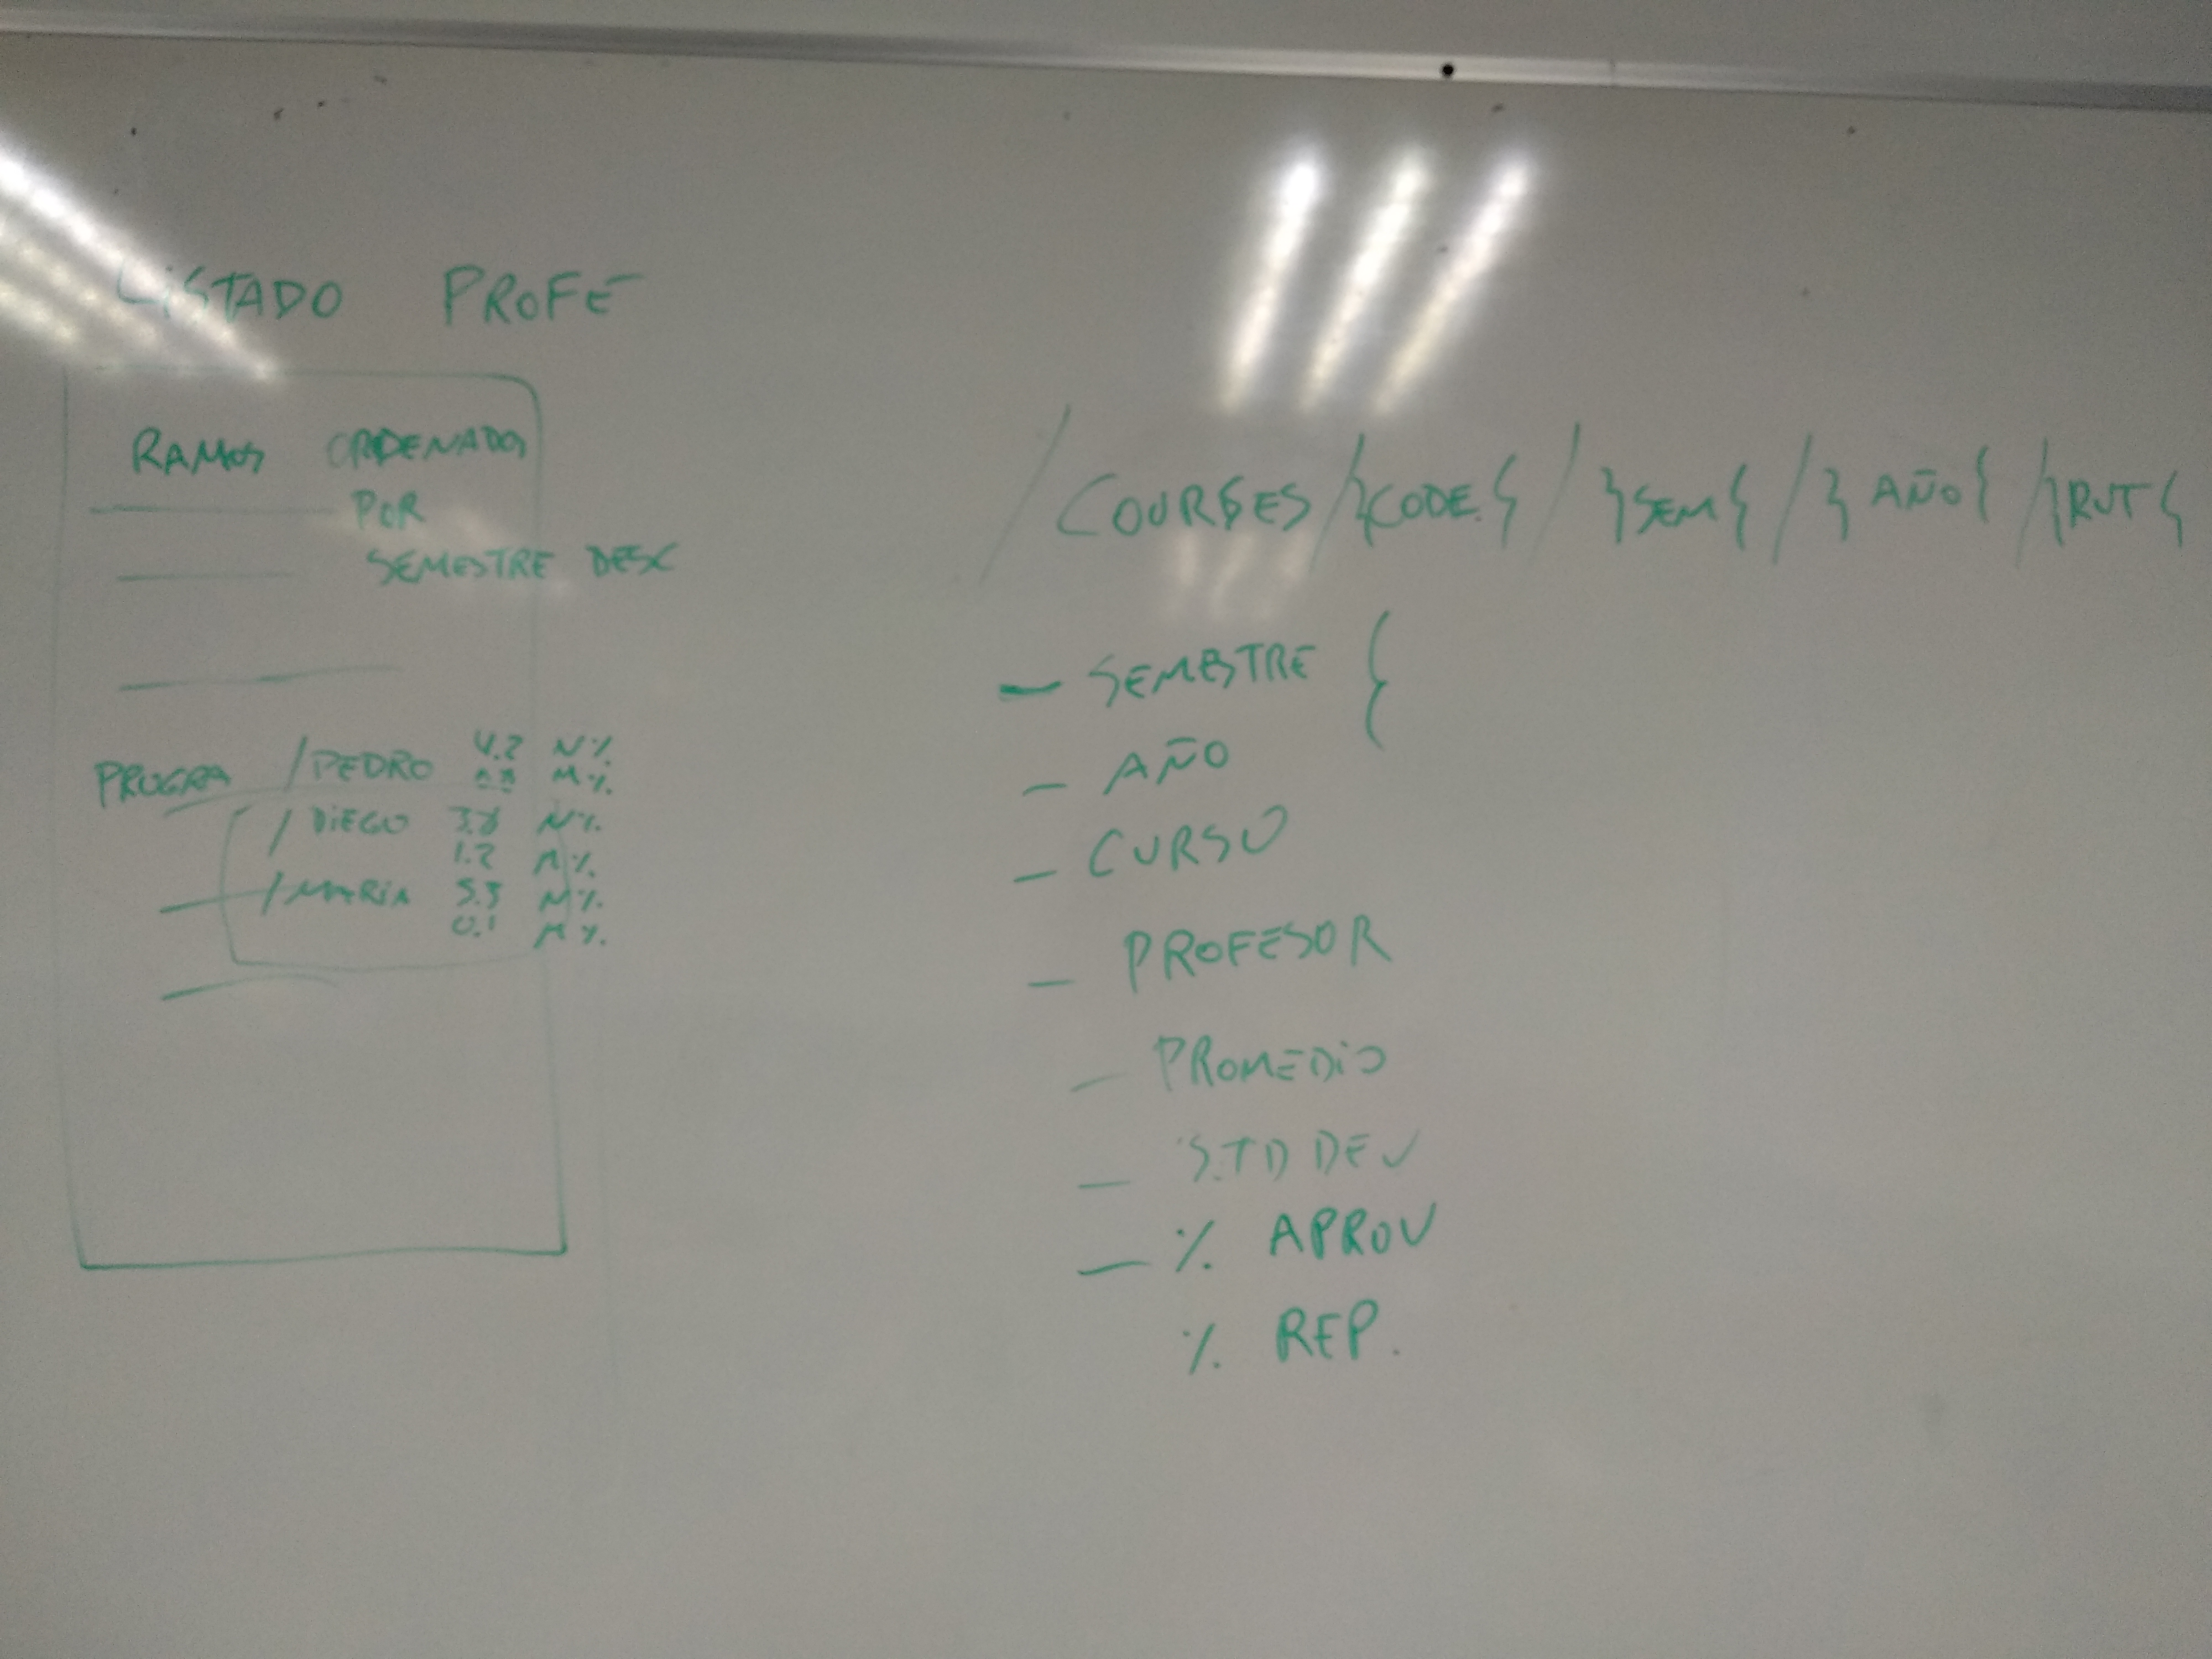 LISTADO PROFE
RAMOS ORDENADOS
POR
SEMESTRE DESC
PROGRA /PEDRO 4.2 N%
M%
/ DIEGO 3.8 N%
1.2 M%
/ MARIA 5.3 N%
0.1 M%
/COURSES/}CODE{/}SEM{/}AÑO{/}RUT{
- SEMESTRE {
- AÑO
- CURSO
- PROFESOR
- PROMEDIO
- STD DEV
- % APROV
% REP.